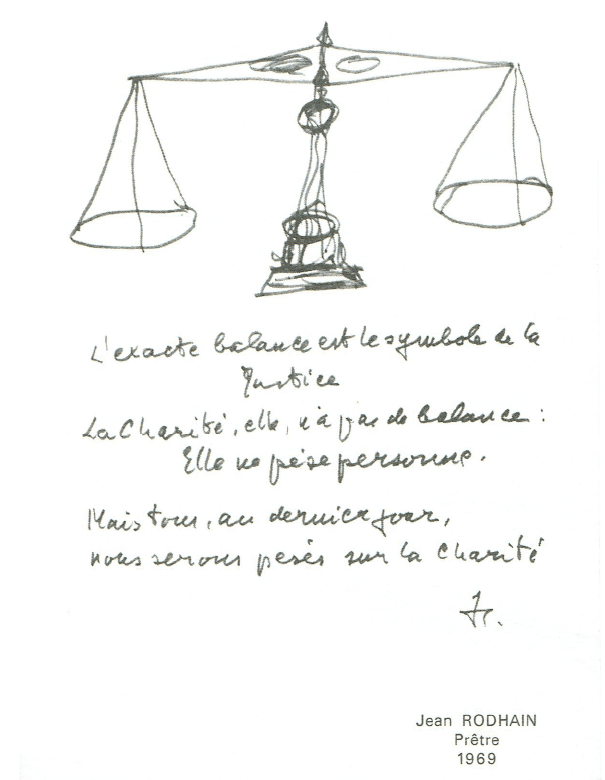 L'exacte balance est le symbole de la
Justice
La Charité, elle, n'a pas de balance :
Elle ne pèse personne.
Mais tous, au dernier jour,
nous serons pesés sur la Charité
Jr.
Jean RODHAIN
Prêtre
1969